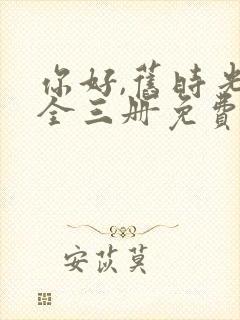 你好,舊時光
全三册免費
安苡莫